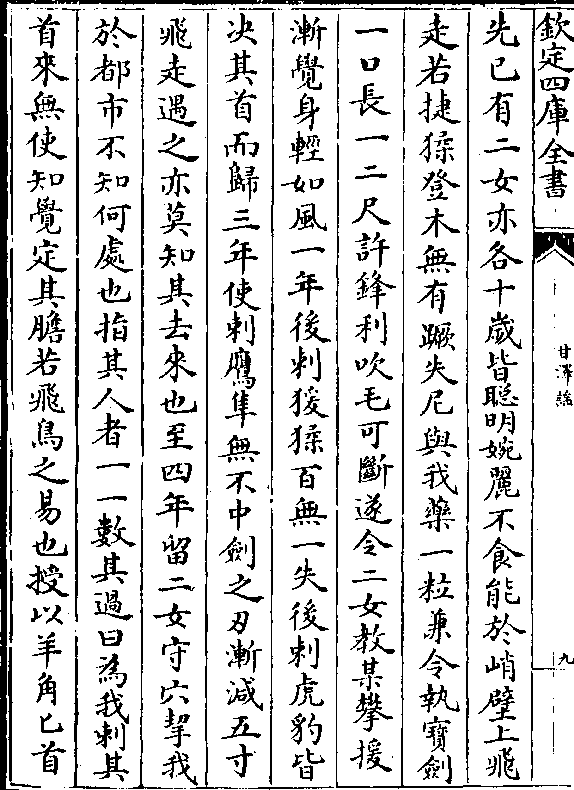 欽定四庫全書
甘澤謠
九
先已有二女亦各十歲皆聰明婉麗不食能於峭壁上飛
走若捷猱登木無有蹶失尼與我藥一粒兼令執寶劍
一口長一二尺許鋒利吹毛可斷遂令二女教某攀援
漸覺身輕如風一年後刺猨猱百無一失後刺虎豹皆
决其首而歸三年使刺鷹隼無不中劍之刃漸減五寸
飛走遇之亦莫知其去來也至四年留二女守穴挈我
於都市不知何處也指其人者一一數其過曰為我刺其
首來無使知覺定其膽若飛鳥之易也授以羊角匕首